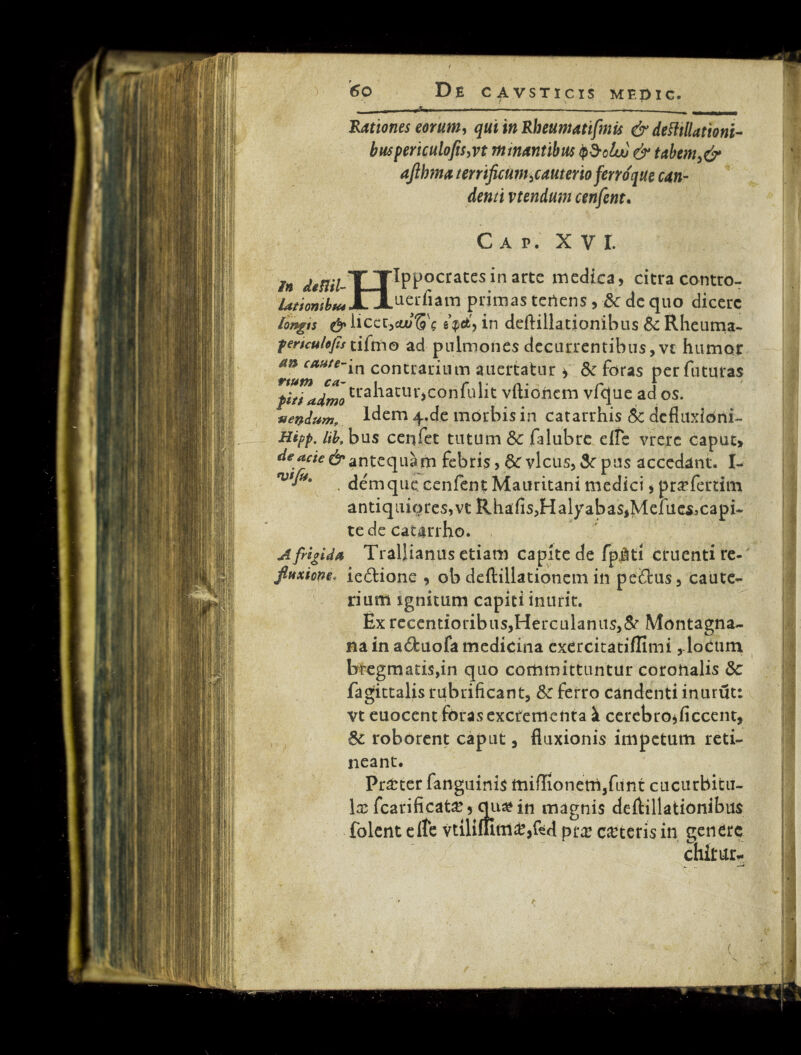 60 DE CAVSTICIS MEDIC.
Rationes eorum, qui in Rheumatismis & destillationi-
bus periculosis, vt minantibus φθοlω & tabem, &
asthma terrificum, cauterio ferróque can-
denti vtendum censent.
CAP. XVI.
In destil-
lationibus
longis &
periculosis
an caute-
rium ca-
piti admo
uendum.
Hipp. lib.
de acie &
visu.
HIppocrates in arte medica, citra contro-
uersiam primas tenens, & de quo dicere
licet, in destillationibus & Rheuma-
tismo ad pulmones decurrentibus, vt humor
in contrarium auertatur, & foras per futuras
trahatur, consulit vstionem vsque ad os.
Idem 4. de morbis in catarrhis & defluxioni-
bus censet tutum & salubre esse vrere caput,
antequàm febris, & vlcus, & pus accedant. I-
démque censent Mauritani medici, præsertim
antiquiores, vt Rhasis, Halyabas, Mesues, capi-
te de catarrho.
A frigida
fluxione.
Trallianus etiam capite de spúti cruenti re-
iectione, ob destillationem in pectus, caute-
rium ignitum capiti inurit.
Ex recentioribus, Herculanus, & Montagna-
na in actuosa medicina exercitatissimi, locum
bregmatis, in quo committuntur coronalis &
sagittalis rubrificant, & ferro candenti inurūt:
vt euocent foras excrementa à cerebro, siccent,
& roborent caput, fluxionis impetum reti-
neant.
Præter sanguinis missionem, sunt cucurbitu-
læ scarificatæ, quæ in magnis destillationibus
solent esse vtilissimæ, sed præ cæteris in genere
chirur-